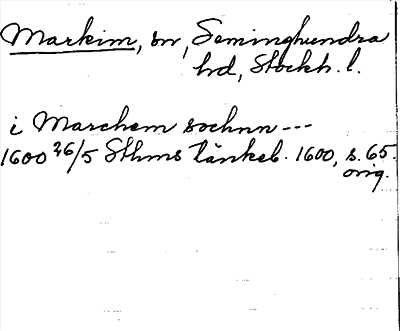 Markim, sn, Seminghundra
hd, Stockh. l.
i Marchem sochnn ---
1600 26/5 Sthms tänkeb. 1600, s. 65.
orig.